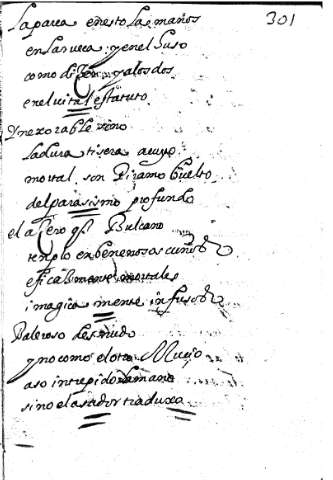 301
La parca en esto las manos
en la rueca y en el huso
como dicen y a los dos
en el vital estatuto
Ynexorable vino
la dura tisera a cuyo
mortal son Piramo buelto
del parasismo profundo
el asero qe Bulcano
templo en benenosos cumos
eficasmente mortales
i magicamente infusos
Baleroso desnudo
y no como el otro Mucio
aso intrepido la mano
sino el asador traduxo